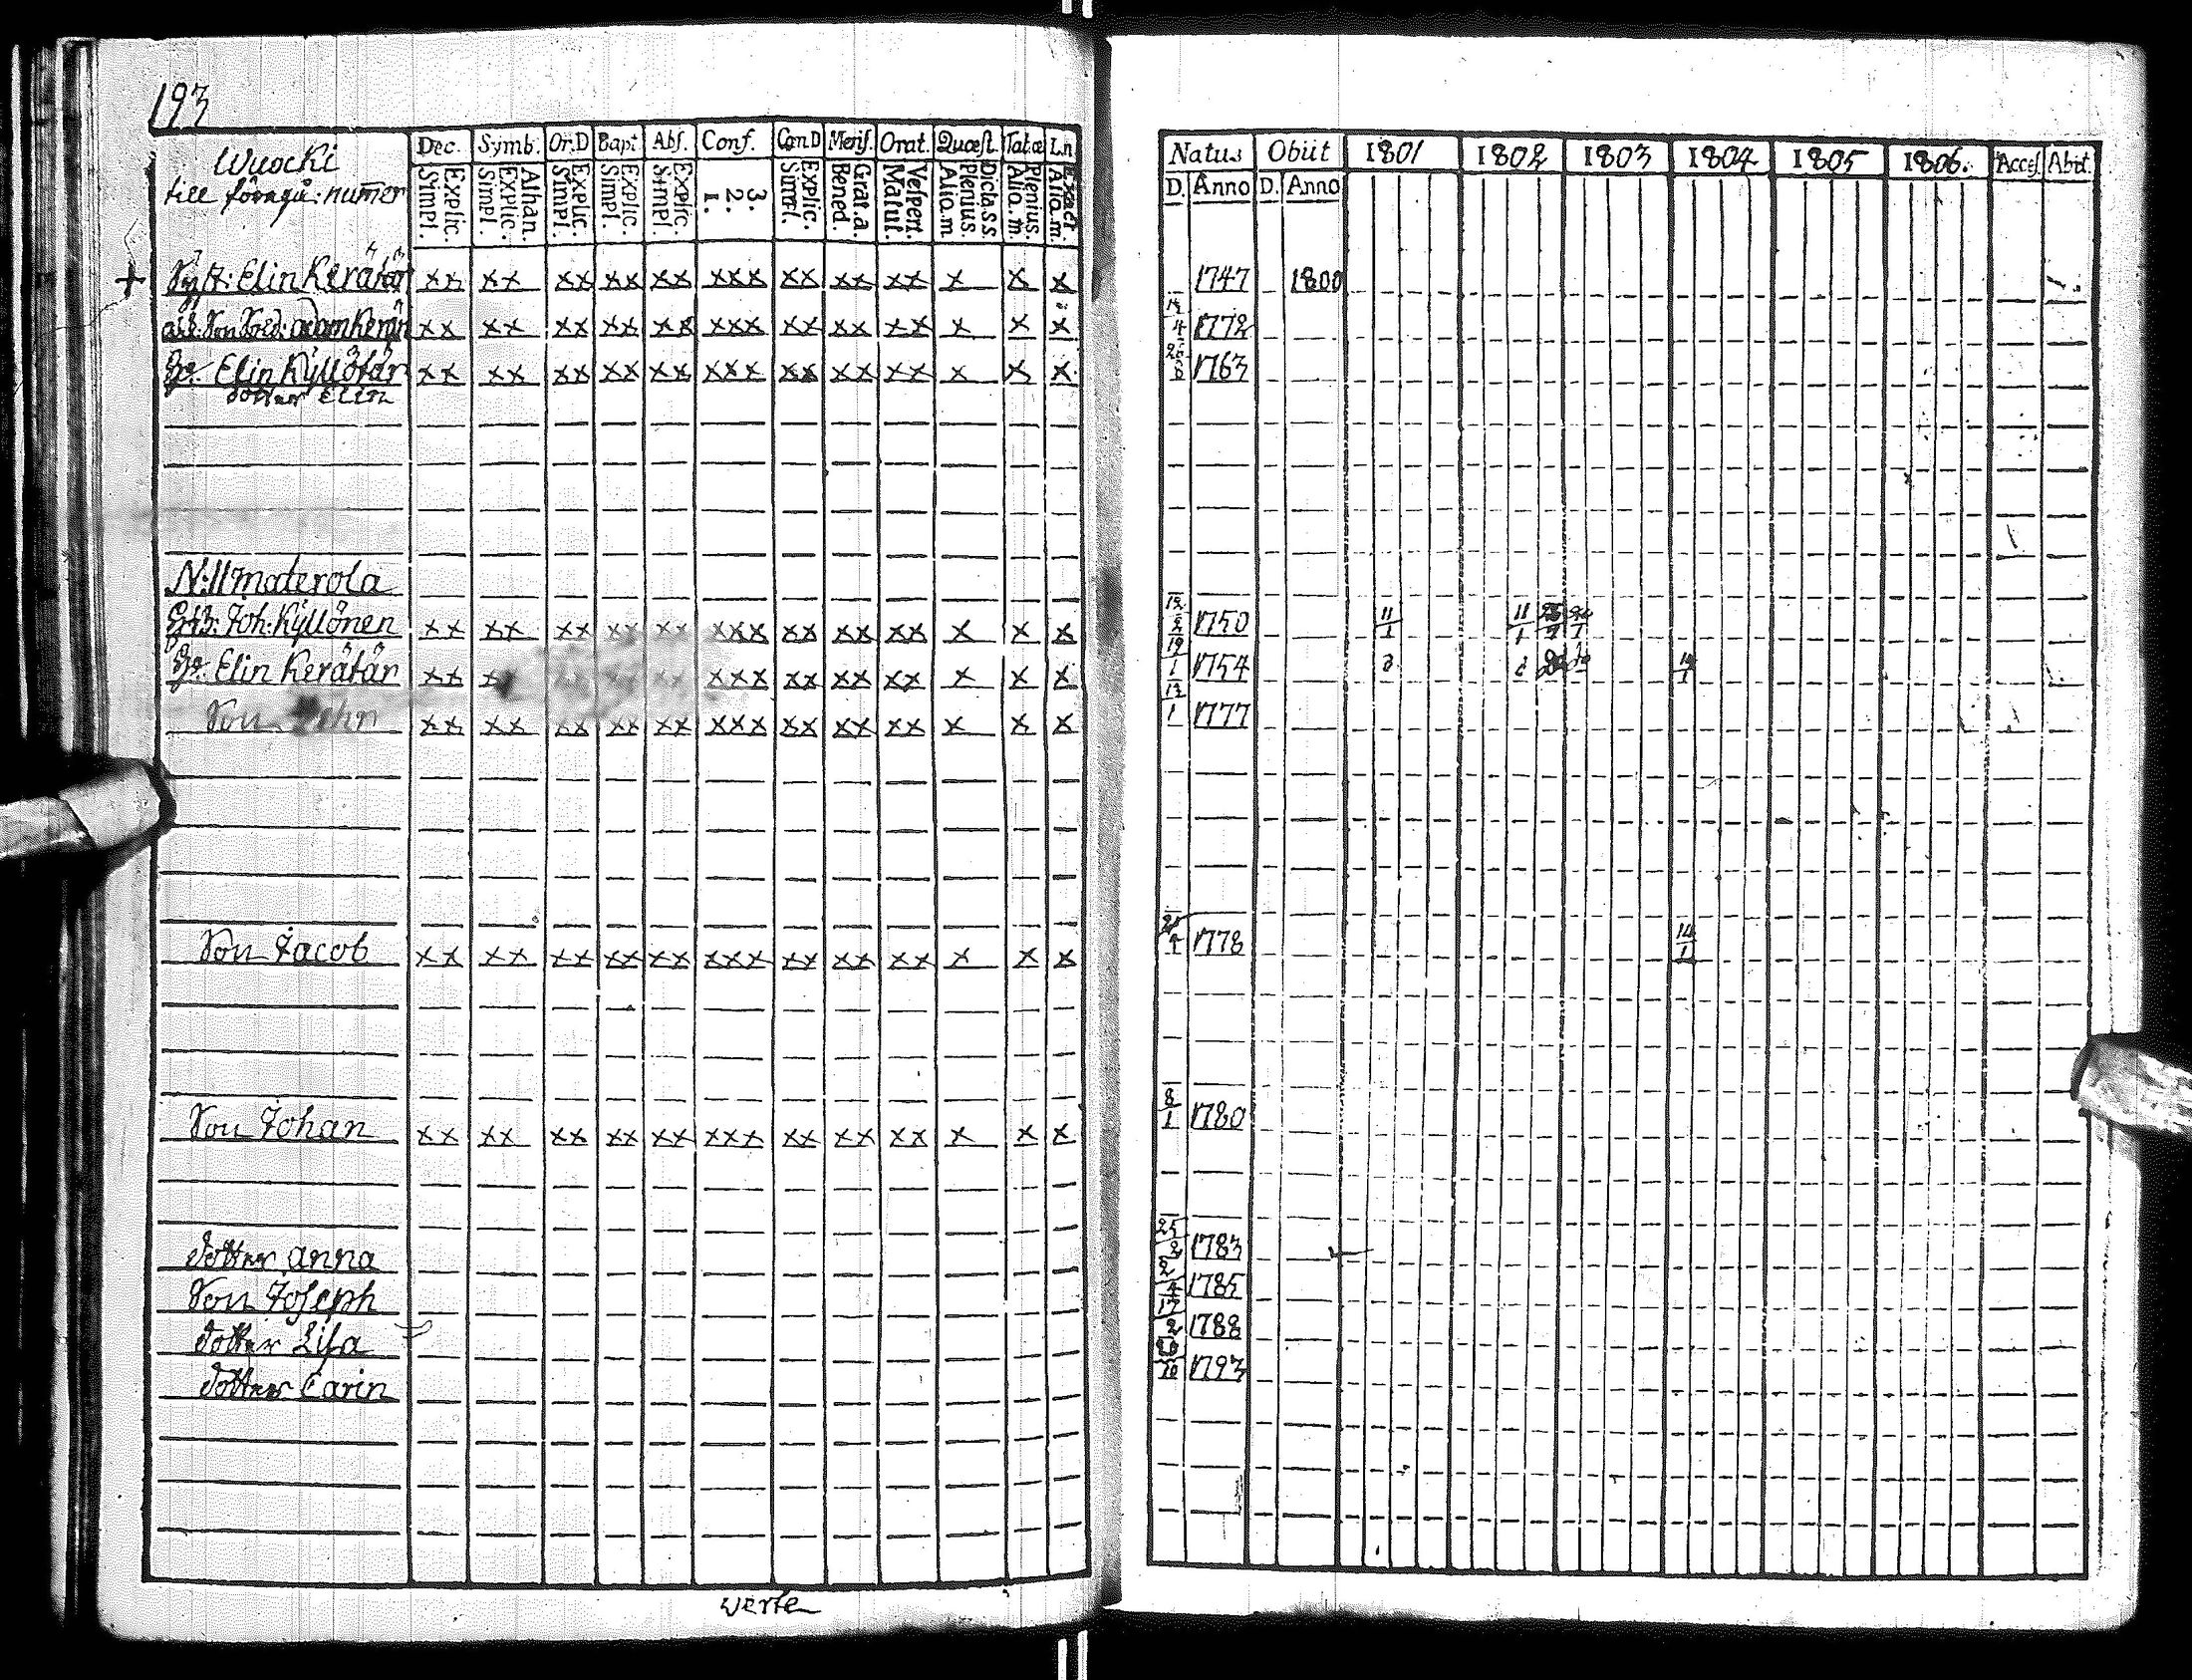 193
Wuocki
till föregå: numer
Dec. Symb. Or.D Bapt Abs. Conf. Con D Mens. Orat. Quæst. Tab.œ Ln
Explic. Simpl. Athan. Explic. Simpl. Explic. Simpl. Explic. Simpl. Explic. Simpl. 3. 2. 1. Explic. Simpl. Grat.a. Bened. Vespert. Matut. Dicta.s.s. Plenius. Alio.m Plenius. Alio.m. Exact. Alio.m.
Natus Obiit 1801 1802 1803 1804 1805 1806. Acces. Abit.
D. Anno D. Anno
+ Elin Kerätär xx xx xx xx xx xxx xx xx xx x x x 1747 1800
Son Fred: adam Kerän xx xx xx xx xx xxx xx xx xx x x x 1772
Elin Kyllötär xx xx xx xx xx xxx xx xx xx x x x 1763
dotter Elin
N:11 materola
Joh: Kyllönen xx xx xx xx xx xxx xx xx xx x x x 1750 11/1 11/1
Elin Kerätär xx xx xx xx xxx xx xx xx x x x 19/1 1754
Son xx xx xx xx xx xxx xx xx xx x x x 1777
Son Jacob xx xx xx xx xx xxx xx xx xx x x x 1778 14/1
Son Johan xx xx xx xx xx xxx xx xx xx x x x 8/1 1780
dotter anna 25/2 1783
Son Joseph 2/4 1785
dotter Lisa 17/2 1788
dotter Carin 1793
werte